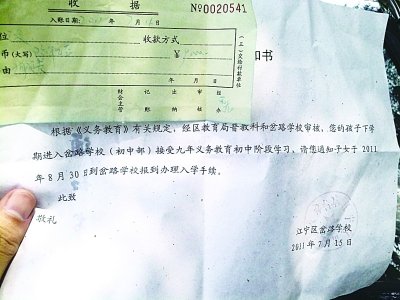 收 据
№0020541
入账日期： 年 月 日
位
收款方式
币(大写)
¥
由
年 月 日
财会主管
记账
出纳
审核
经办
(三)交给付款单位
知书
根据《义务教育》有关规定，经区教育局普教科和岔路学校审核，您的孩子下学
期进入岔路学校（初中部）接受九年义务教育初中阶段学习，请您通知子女于 2011
年 8 月 30 日到岔路学校报到办理入学手续。
此致
敬礼
江宁区岔路学校
2011 年 7 月 15 日